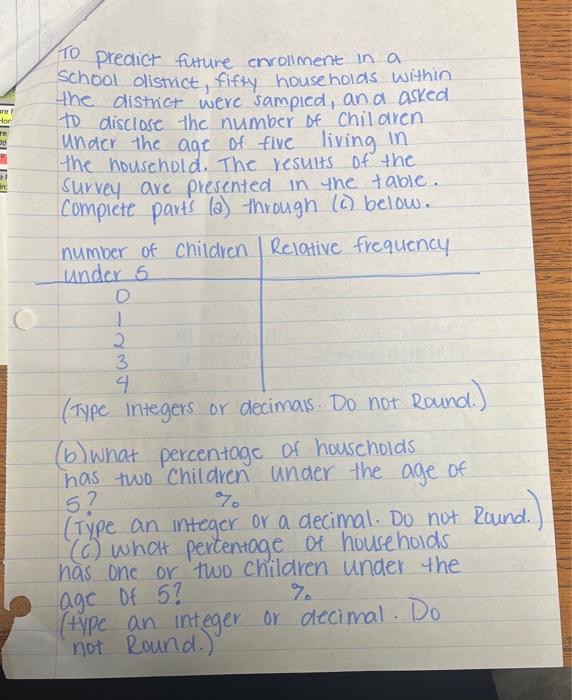 To predict future enrollment in a
School district, fifty households within
the district were sampled, and asked
to disclose the number of Children
under the age of five living in
the household. The results of the
survey are presented in the table.
Complete parts (a) through (c) below.
number of Children | Relative frequency
under 5
0
1
2
3
4
(Type integers or decimals. Do not Round.)
(b) what percentage of households
has two Children under the age of
5? %
(Type an integer or a decimal. Do not Round.)
(c) what percentage of households
has one or two Children under the
age of 5? %
(type an integer or decimal. Do
not Round.)